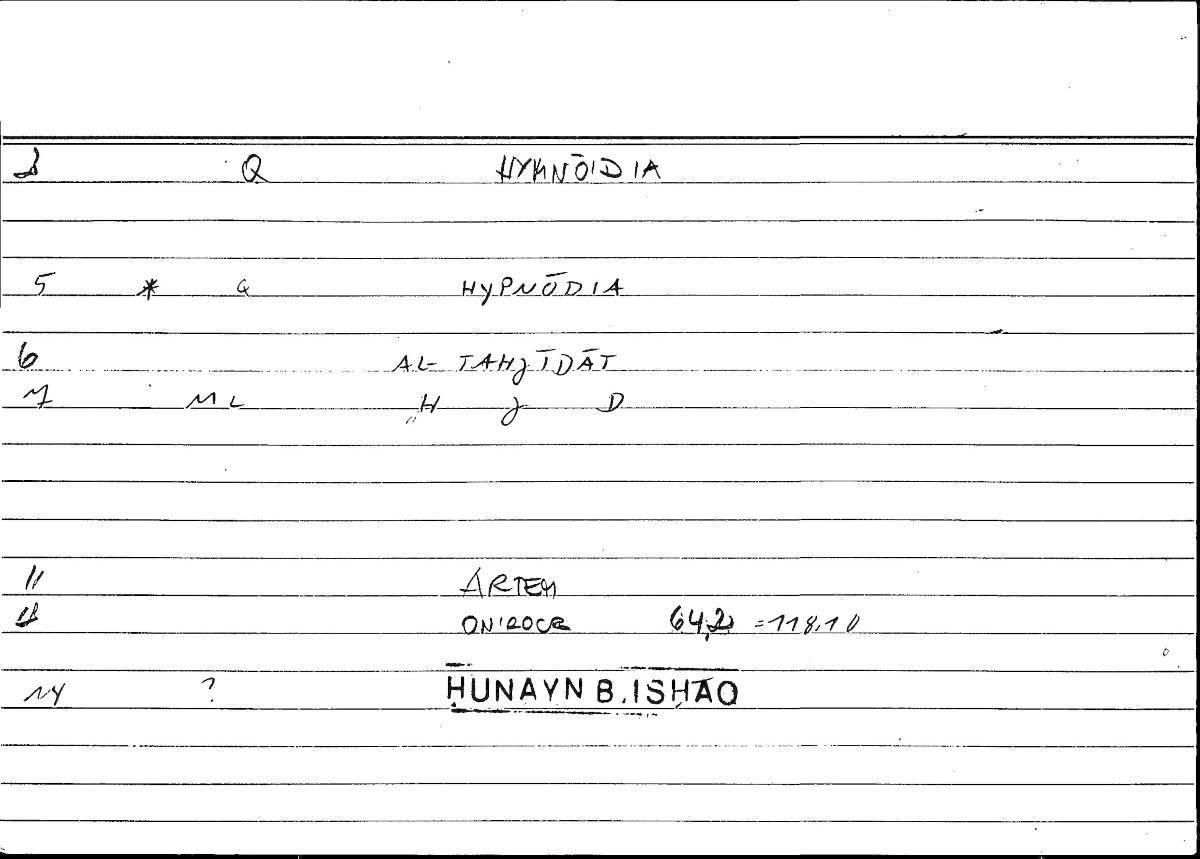 Q HYPNŌIDIA
5 * Q HYPNŌDIA
6 AL-TAHJĪDĀT
7 ML H J D
11 ARTEM
ONIROCR 64,2 =118,10
14 ? ḤUNAYN B. ISḤĀQ